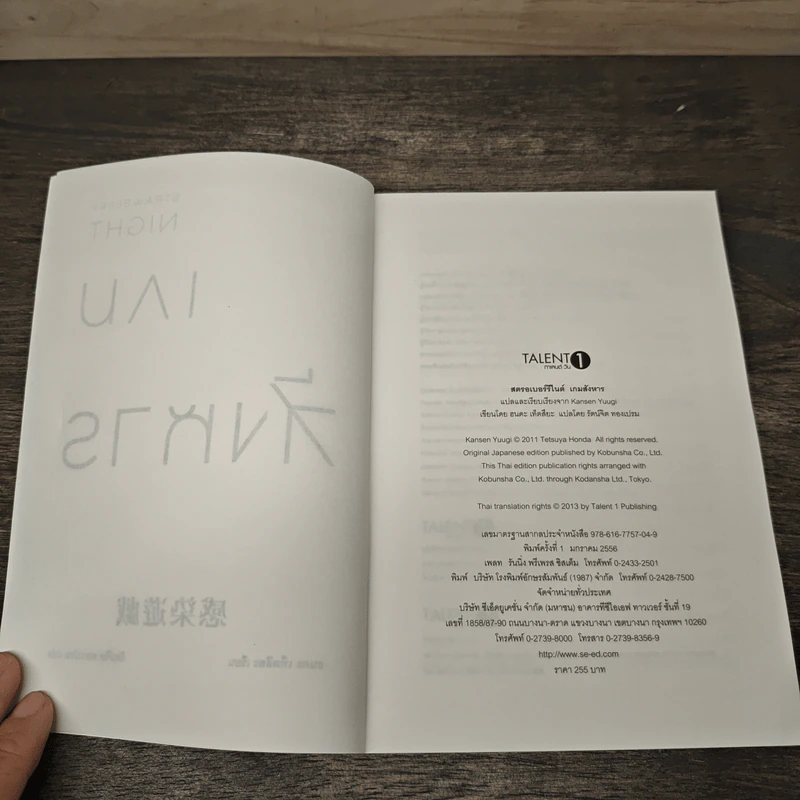 STRAWBERRY
NIGHT
เกม
สังหาร
感染遊戯
TALENT 1
ทาเลนต์ วัน
สตรอเบอร์รีไนต์ เกมสังหาร
แปลและเรียบเรียงจาก Kansen Yuugi
เขียนโดย ฮนดะ เท็ตสึยะ แปลโดย รัตน์จิต ทองเปรม
Kansen Yuugi © 2011 Tetsuya Honda All rights reserved.
Original Japanese edition published by Kobunsha Co., Ltd.
This Thai edition publication rights arranged with
Kobunsha Co., Ltd. through Kodansha Ltd., Tokyo.
Thai translation rights © 2013 by Talent 1 Publishing
เลขมาตรฐานสากลประจำหนังสือ 978-616-7757-04-9
พิมพ์ครั้งที่ 1 มกราคม 2556
เพลท รันนิ่ง พรีเพรส ซิสเต็ม โทรศัพท์ 0-2433-2501
พิมพ์ บริษัท โรงพิมพ์อักษรสัมพันธ์ (1987) จำกัด โทรศัพท์ 0-2428-7500
จัดจำหน่ายทั่วประเทศ
บริษัท ซีเอ็ดยูเคชั่น จำกัด (มหาชน) อาคารทีซีไอเอฟ ทาวเวอร์ ชั้นที่ 19
เลขที่ 1858/87-90 ถนนบางนา-ตราด แขวงบางนา เขตบางนา กรุงเทพฯ 10260
โทรศัพท์ 0-2739-8000 โทรสาร 0-2739-8356-9
http://www.se-ed.com
ราคา 255 บาท